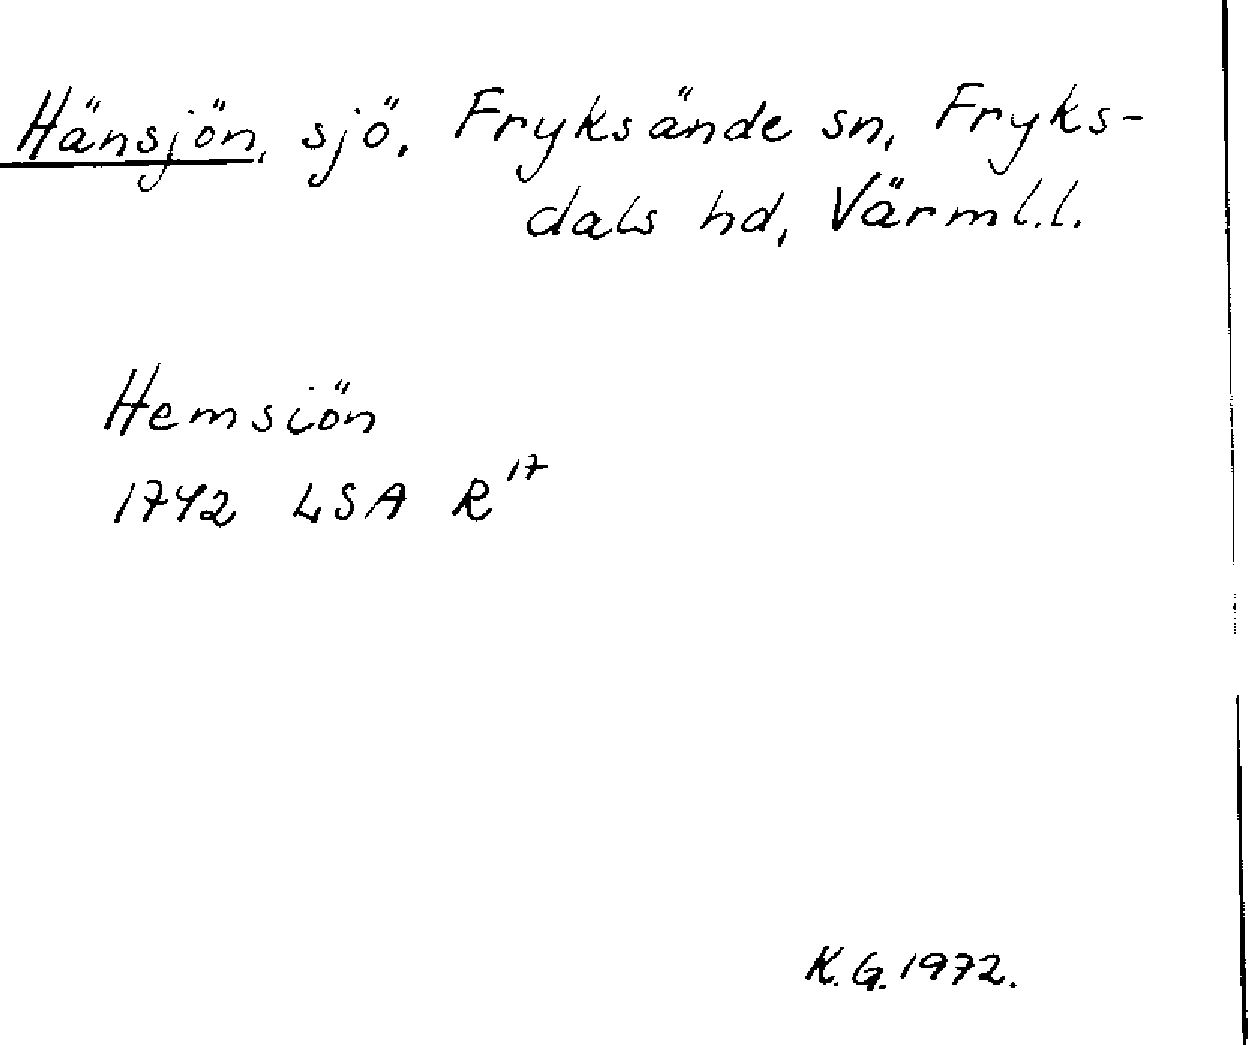 Hänsjön, sjö. Fryksände sn, Fryks-
dals hd, Värml.l.
Hemsiön
1742 LSA R¹⁷
K.G. 1972.